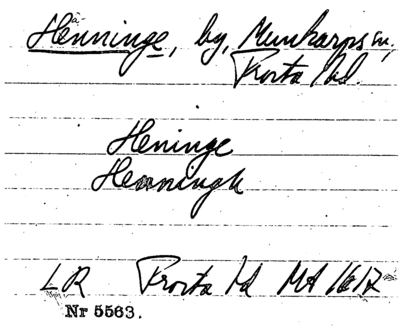 Henninge, by, Munkarps sn,
Frosta hd.
Heninge
Henningh
LR Frosta hd MA 1612
Nr 5563.